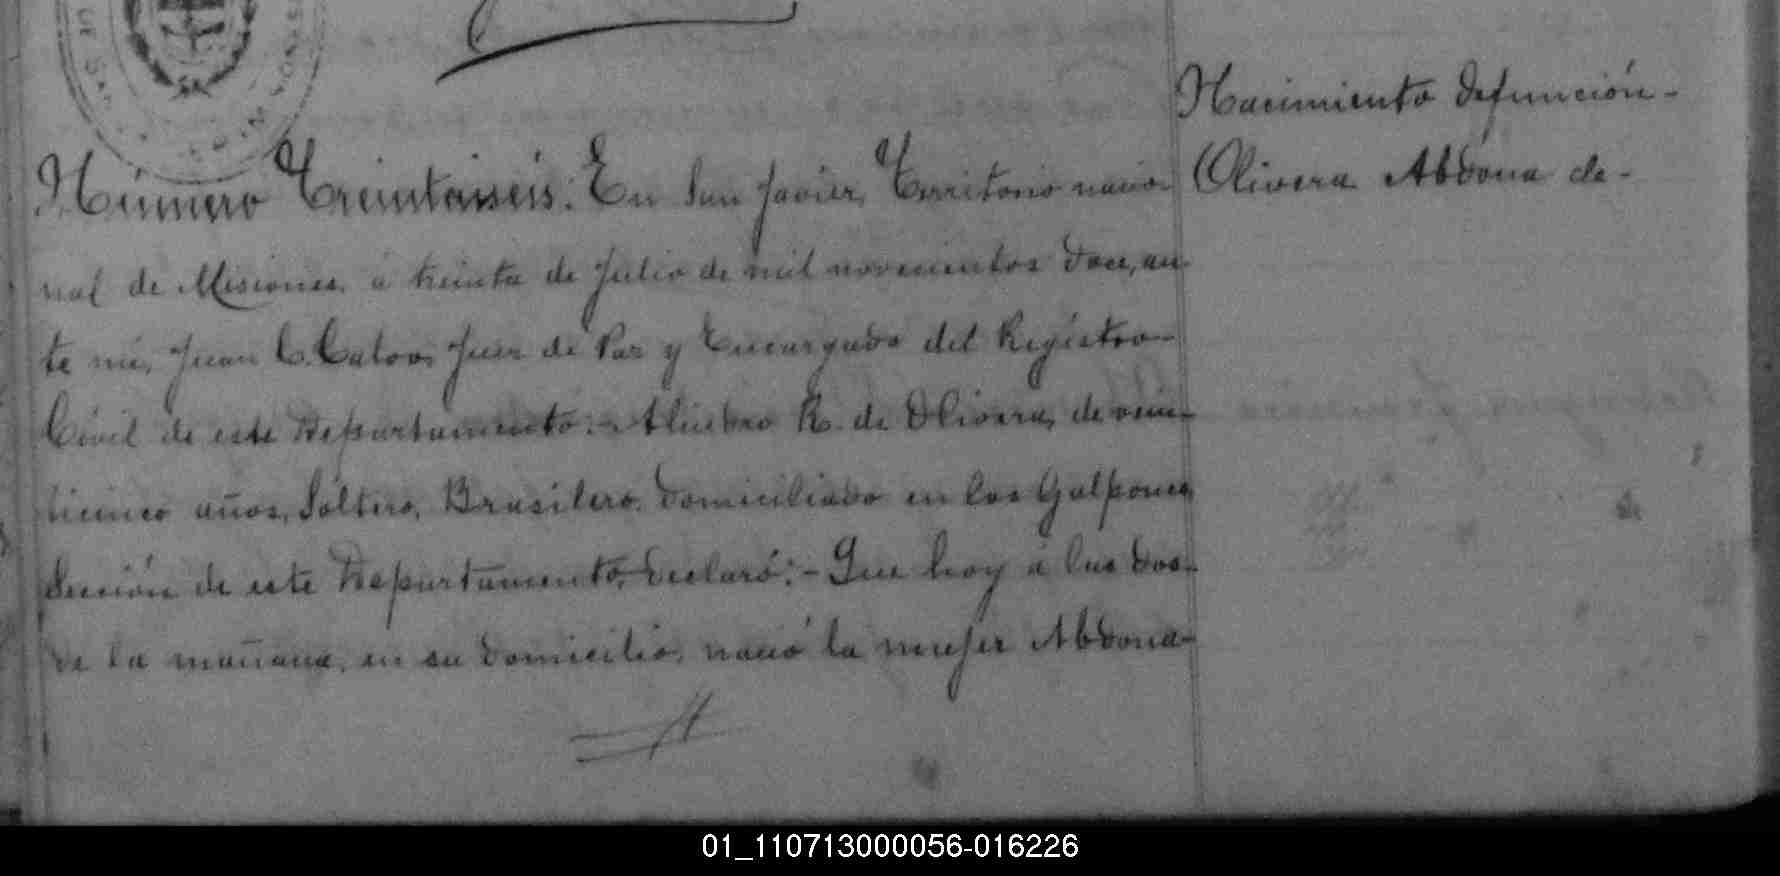 Nacimiento defunción-
Olivera Abdona de-
Número Treintaiseis: En San Javier, Territorio nacio-
nal de Misiones, á treinta de Julio de mil novecientos doce, an-
te mí, Juan C. Juez de Paz y Encargado del Registro-
Civil de este Departamento:- R. de Olivera, de vein-
ticinco años, Soltero, Brasilero, domiciliado en los Galpones,
Sección de este Departamento, declaró:- Que hoy á las dos-
de la mañana, en su domicilio, nació la mujer Abdona-
01_110713000056-016226